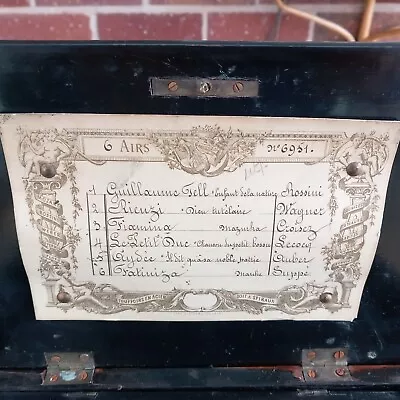 6 AIRS No 6951.
1 Guillaume Tell . Enfant de la nature Rossini
2 Rienzi . Dieu tutélaire Wagner
3 Framina mazurka Croisez
4 Le Petit Duc . Chanson du petit bossu Lecocq
5 Haydée . Il dit qu'à sa noble patrie Auber
6 Fatiniza marche Suppé